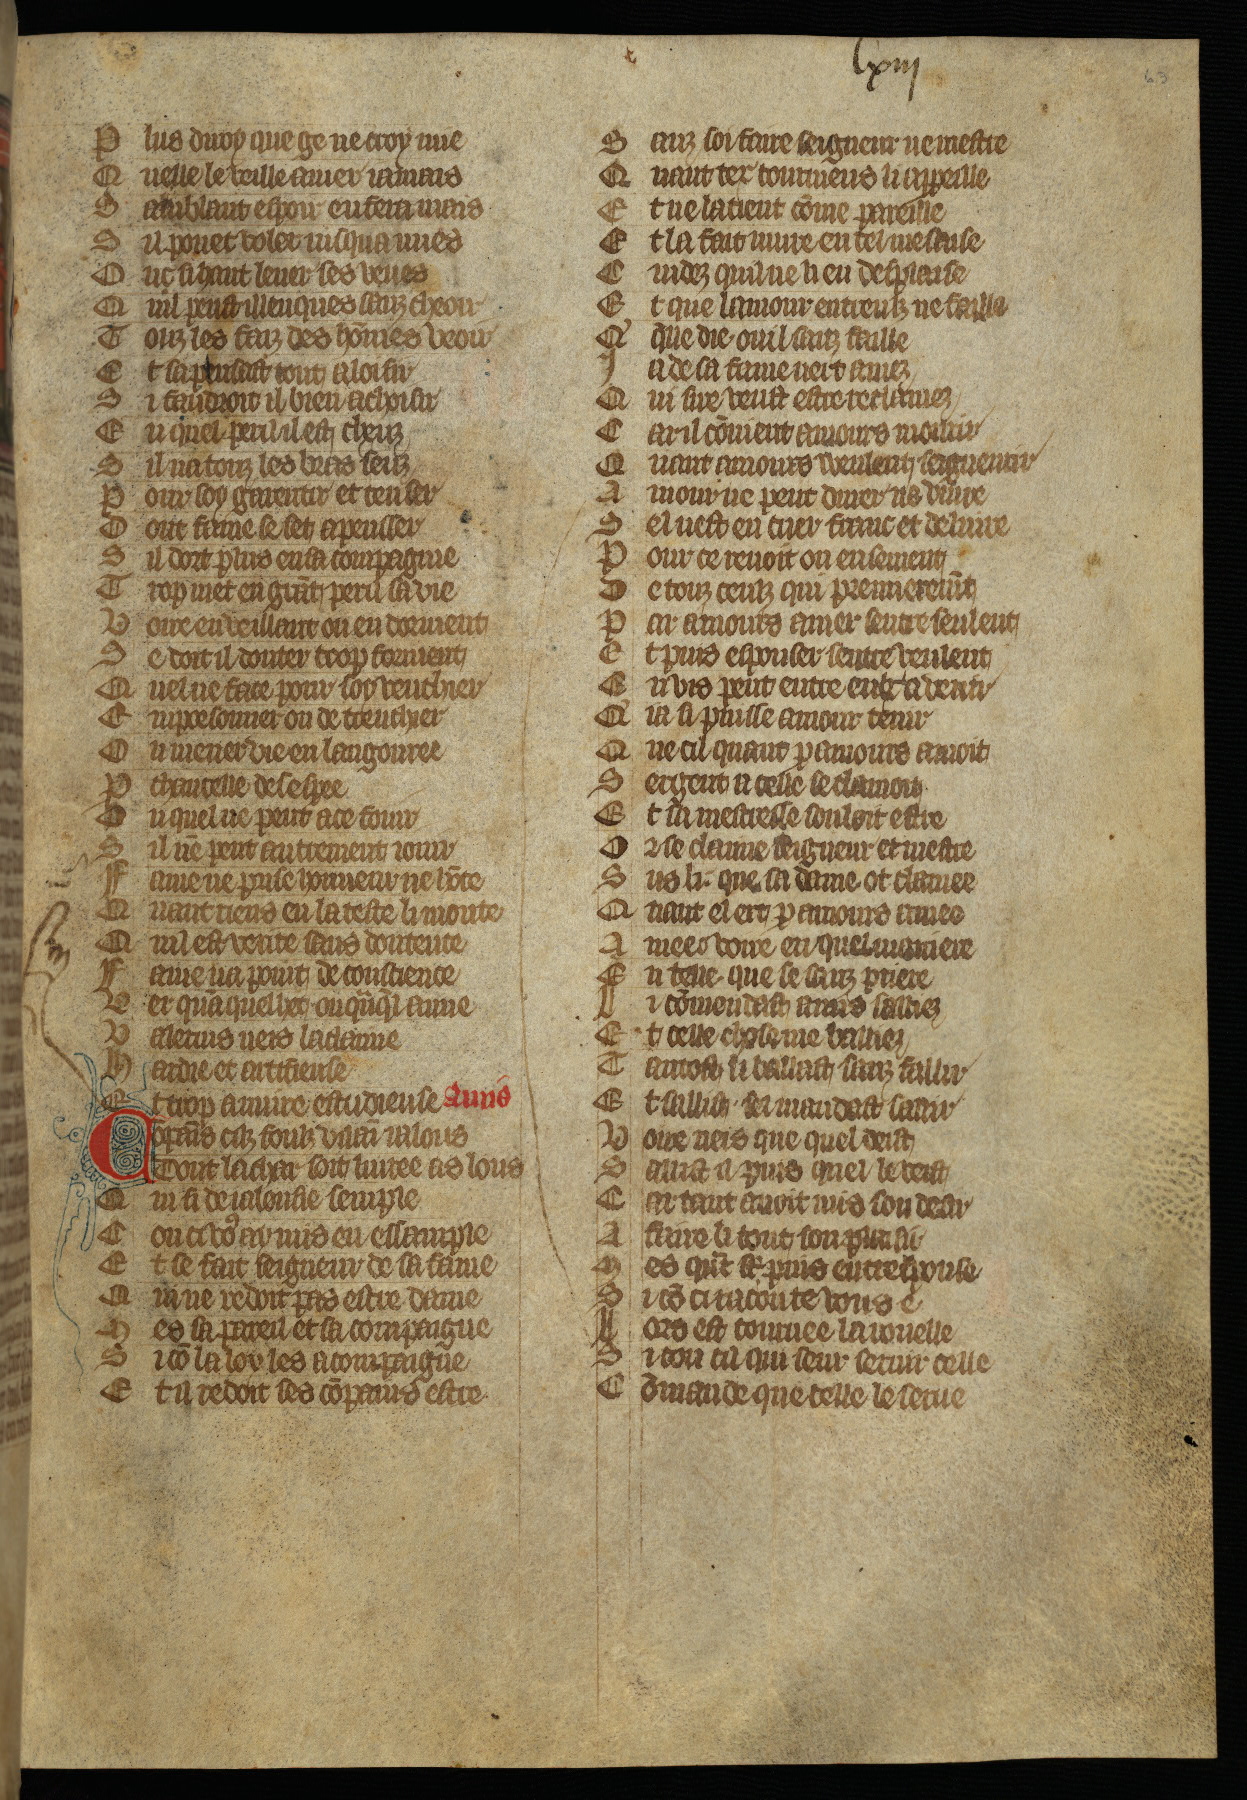 lxiij
63
P lus duroy que ge ne croy mie
Q uelle le veille amer iamais
S amblant espoir en fera mais
S il pouet voler iusqua nues
O uc si haut leuer ses veues
Q uil peust illeuques sanz cheoir
T ouz les faiz des hōmes veoir
E t sapensast tout a loisir
S i faudroit il bien a choisir
E n quel peril il est cheuz
S il na touz les braz seuz
P our soy garentir et tenser
D ont fame se set apensser
S il dort plus en sa compaignie
T rop met en grāt peril sa vie
V oire en veillant ou en dorment
S e doit il douter trop forment
Q uel ne face pour soy venchier
E mpoisonner ou detrenchier
O u mener vie en langouree
P ch ancelle desespee
O u quel ne peut a ce fouir
S il ne peut autrement iouir
F ame ne prise honneur ne hōte
Q uant riens en la teste li monte
Q uil est verite sans doutente
F ame na point de conscience
V er quaquelhet ou q̄ q̄l aime
V alerius neis laclaime
H ardie et artificeuse
E t trop a nuire estudieuse Amis
C opains ciz foulz vilaī ialous
Dont la char soit liuree as lous
Q ui si de ialousie semple
C on ci vo9 ay mis en essample
E t se fait seigneur de sa fame
Q ui ne redoit pas estre dame
M es sa pareil et sa compaigne
S i cō la loy les acompaigne
E t il redoit ses cōpains estre
S anz soi faire seigneur ne mestre
Q uant tex tourmens li appeille
E t ne la tient cōme pareille
E t la fait uiure en tel mesaise
C uidez quil ne li en desplaise
E t que lamour entreulz ne faille
Q̄ que die ouil sanz faille
J a de sa fame niert amez
Q ui sire veust estre reclamez
C ar il cōuient amours mourir
Q uant amours veulent seigneurir
A mour ne peut durer ns viure
S el nest en cuer franc et deliure
P our ce reuoit on ensement
D e touz ceulz qui premieremēt
P ar amours amer sentre seulent
E t puis espouser sentre veulent
E nvis peut entre eulz aduenir
Q ia si puisse amour tenir
Q ue cil quant p amours amoit
S ergent a celle se clamoit
E t sa mestresse souloit estre
O r se claime seigneur et mestre
S us li que sa dame ot clamee
Q uant el ert p amours amee
A mees voire en quel maniere
E n telle que se sanz priere
L i cōmendast amis sailliez
E t celle chose me bailliez
T antost li baillast sanz faillir
E t saillist sel mandast saillir
V oire neis que quel deist
S aillist il puis quel le veist
C ar tant auoit mis son desir
A faire li tout son plaisir
M es qn̄t se puis entrespouse
S i cō ci raconte vous e
L ors est tournee la rouelle
S i con cil qui seut seruir celle
C ōmande que celle le serue